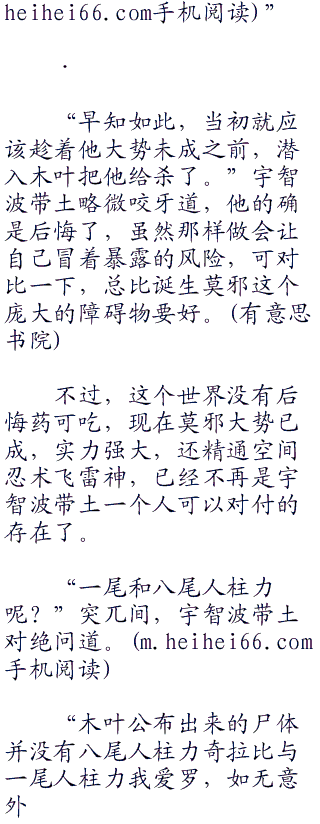 heihei66.com手机阅读)”
.
“早知如此，当初就应
该趁着他大势未成之前，潜
入木叶把他给杀了。”宇智
波带土略微咬牙道，他的确
是后悔了，虽然那样做会让
自己冒着暴露的风险，可对
比一下，总比诞生莫邪这个
庞大的障碍物要好。(有意思
书院)
不过，这个世界没有后
悔药可吃，现在莫邪大势已
成，实力强大，还精通空间
忍术飞雷神，已经不再是宇
智波带土一个人可以对付的
存在了。
“一尾和八尾人柱力
呢？”突兀间，宇智波带土
对绝问道。(m.heihei66.com
手机阅读)
“木叶公布出来的尸体
并没有八尾人柱力奇拉比与
一尾人柱力我爱罗，如无意
外